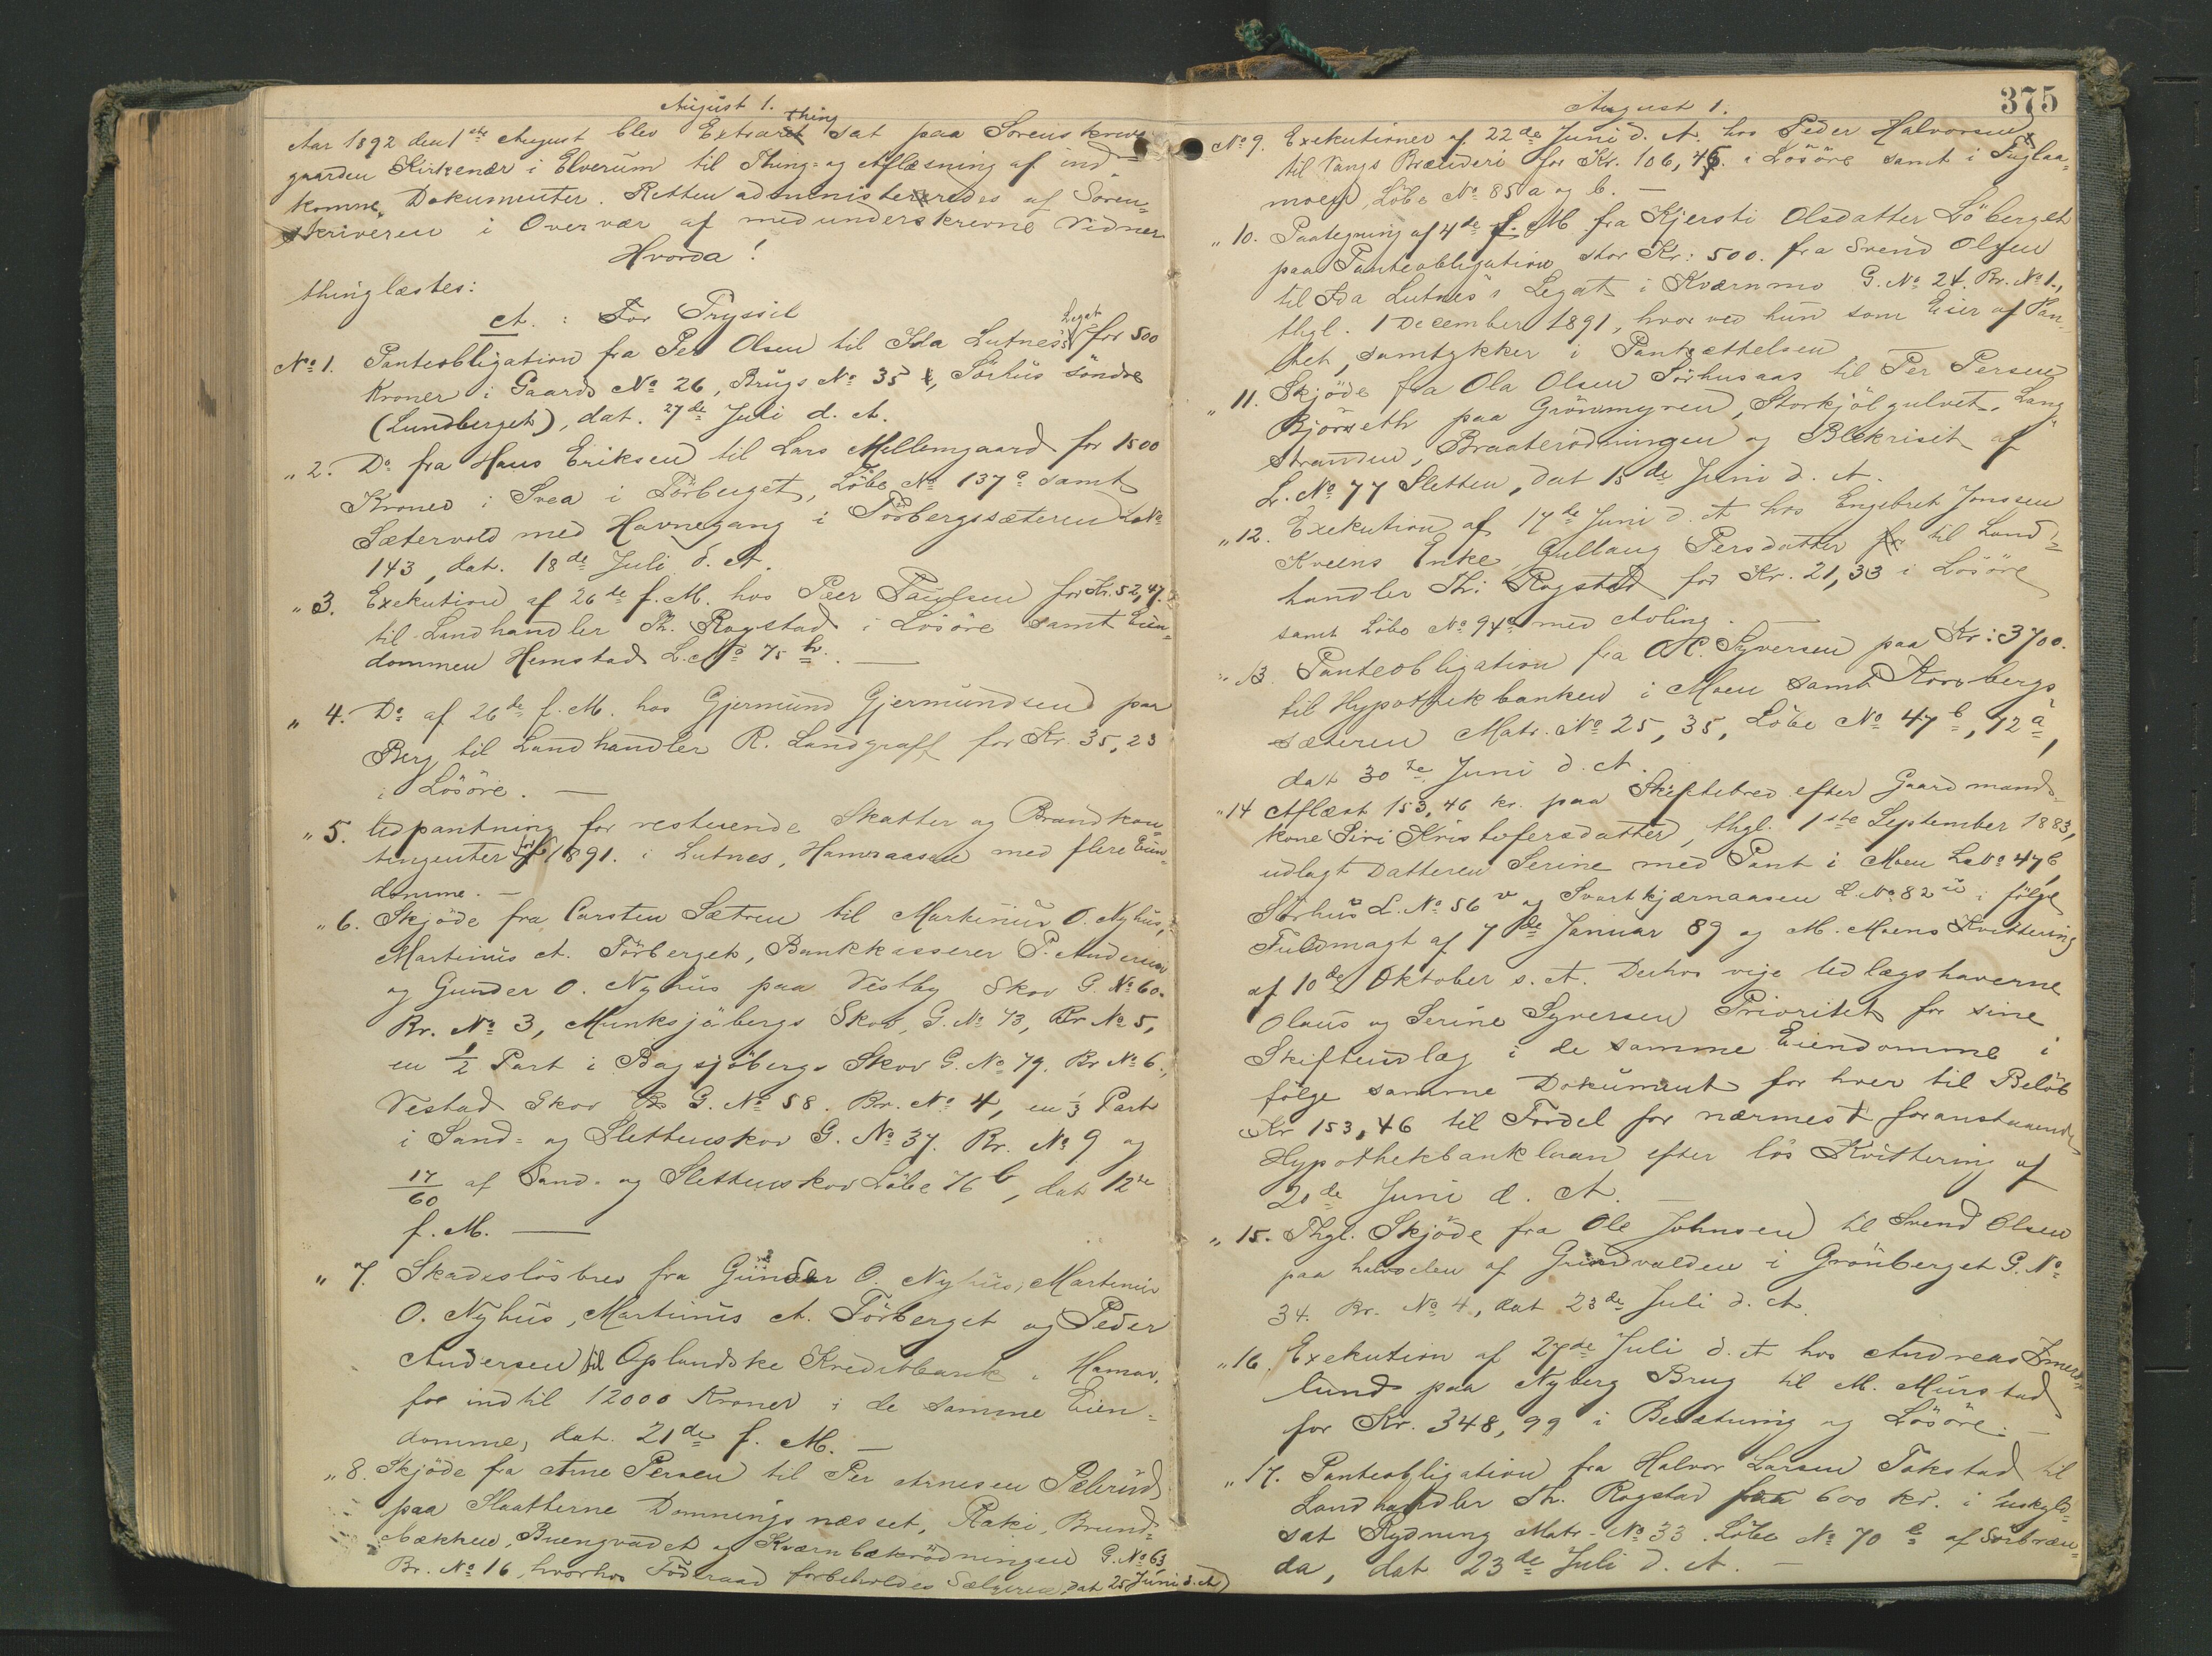 August 1.
Aar 1892 den 1ste August blev Extrarett thing sat paa Sorenskriver
gaarden Kirkenær i Elverum til Thing- og Aflæsning af ind-
komne Dokumenter. Retten administreredes af Soren-
skriveren i Overvær af medunderskrevne Vidner
Hvorda!
thinglæstes:
A. : For Trysil
No 1. Panteobligation fra Per Olsen til Ida Lutnes's Legat for 500
Kroner i Gaards No 26, Brugs No 35, Sørhus søndre
(Lundberget), dat. 27de Juli d. A.
" 2. Do fra Hans Eriksen til Lars Mellemgaard for 1500
Kroner i Svea i Törberget, Löbe No 137 a samt
Sætervold med Havnegang i Törbergssæteren L. No
143, dat. 18de Juli d. A.
" 3. Exekution af 26de f. M. hos Peer Paulsen for Kr. 52,47.
til Landhandler Th. Rogstad i Lösöre samt Eien-
dommen Hemstad L. No 75 b. —
" 4. Do af 26de f. M. hos Gjermund Gjermundsen paa
Berg til Landhandler R. Landgraff for Kr. 35,23
i Lösöre. —
" 5. Udpantning for resterende Skatter og Brandkon-
tingenter for 1891. i Lutnes, Hamraasen med flere Eien-
domme. —
" 6. Skjöde fra Carsten Sætren til Martinus O. Nyhus,
Martinus A. Törberget, Bankkasserer P. Andersen
og Gunder O. Nyhus paa Vestby Skov G. No 60.
Br. No 3, Munksjöbergs Skov, G. No 73, Br No 5,
en 1/2 Part i Bagsjöbergs Skov G. No 79. Br No 6.,
Vestad Skov G. No 58. Br. No 4, en 1/3 Part
i Sand- og Slettenskov G. No 37. Br. No 9 og
17/60 af Sand- og Slettenskov Löbe 76 b, dat 12te
f. M. —
" 7. Skadeslösbrev fra Gunder O. Nyhus, Martinus
O. Nyhus, Martinus A. Törberget og Peder
Andersen til Oplandske Kreditbank i Hamar,
for indtil 12000 Kroner i de samme Eien-
domme, dat. 21de f. M. —
" 8. Skjöde fra Arne Persen til Per Arnesen Pelerud
paa Slaatterne Domningsnæsset, Raki, Brund-
bækken, Buengvadet og Kværnbækrödningen G. No 63
Br. No 16, hvorhos Föderaad forbeholdes Sælgeren, dat 25 Juni d. A.
375
August 1.
No 9. Exekutioner af 22de Juni d. A. hos Peder Halvorsen
til Vangs Brænderi for Kr. 106,45. i Lösöre samt i Fuglaa-
moen, Löbe No 85 a og b. —
" 10. Paategning af 4de f. M. fra Kjersti Olsdatter Löberget
paa Panteobligation stor Kr: 500. fra Svend Olsen
til Ida Lutnes's Legat i Kværnmo G. No 24. Br. No 1.,
thgl. 1 December 1891, hvorved hun som Eier af Pan-
tet, samtykker i Pantsættelsen
" 11. Skjöde fra Ola Olsen Sörhusaas til Per Persen
Björseth paa Grönmyren, Storkjölgulvet, Lang-
stranden, Braaterödningen og Blekrisit af
L. No 77 Sletten, dat 15de Juni d. A.
" 12. Exekution af 17de Juni d. A. hos Engebret Jonssen
Kveens Enke Gullaug Persdatter til Land-
handler Th: Rogstad for Kr. 21,33 i Lösöre
samt Löbe No 94 a med Avling. —
" 13. Panteobligation fra O. K. Syversen paa Kr: 3700.
til Hypothekbanken i Moen samt Korsbergs-
sæteren Matr. No 25, 35, Löbe No 47 b, 72 a,
dat 30te Juni d. A.
" 14 Aflæst 153,46 kr. paa Skiftebrev efter Gaardmands-
kone Siri Kristofersdatter, thgl. 1ste September 1883,
udlagt Datteren Serine med Pant i Moen L. No 47 b
Sörhus L. No 56 v og Svartkjærnaasen L. No 82 u i fölge
Fuldmagt af 7de Januar 89 og M. Moens Kvittering
af 10de Oktober s. A. Derhos vige Udlægshaverne
Olaus og Serine Syversen Prioritet for sine
Skifteudlæg i de samme Eiendomme i
fölge samme Dokument for hver til Belöb
Kr 153,46 til Fordel for nærmest foranstaaende
Hypothekbanklaan efter lös Kvittering af
20de Juni d. A. —
" 15. Thgl. Skjöde fra Ole Johnsen til Svend Olsen
paa halvdelen af Grindvolden i Grönberget G. No
34. Br. No 4, dat 23de Juli d. A.
" 16. Exekution af 27de Juli d. A hos Andreas Zmer-
lund paa Nyberg Brug til M. Mürstad
for Kr. 348,99 i Besætning og Lösöre. —
" 17. Panteobligation fra Halvor Larsen Takstad til
Landhandler Th. Rogstad paa 600 kr. i uskyld-
sat Rydning Matr. No 33. Löbe No 70 e af Sörbræn-
da, dat 23de Juli d. A. —